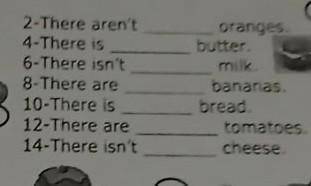 2-There aren't ________ oranges.
4-There is ________ butter.
6-There isn't ________ milk.
8-There are ________ bananas.
10-There is ________ bread.
12-There are ________ tomatoes.
14-There isn't ________ cheese.